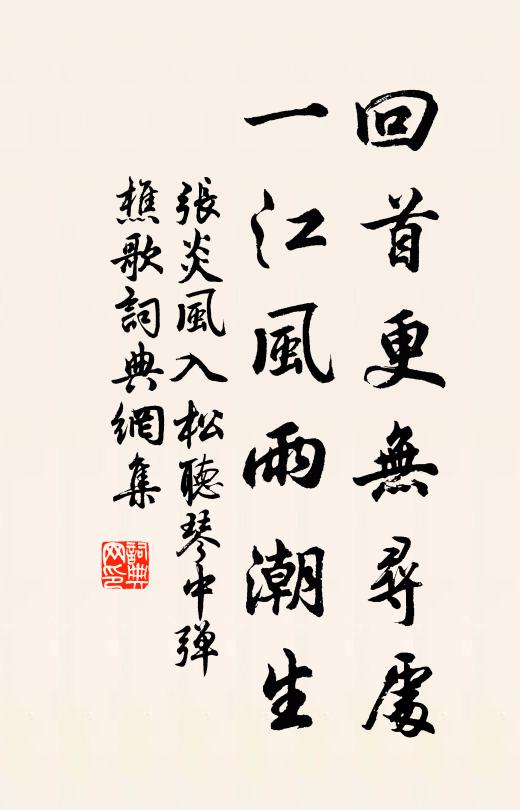 回首更無尋處
一江風雨潮生
張炎風入松聽琴中弹
樵歌詞典網集
詞典
网印